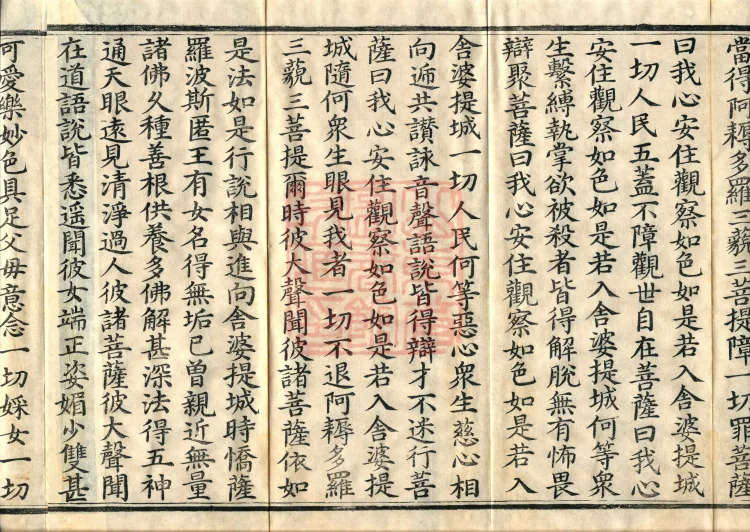 當得阿耨多羅三藐三菩提障一切罪菩薩
曰我心安住觀察如色如是若入舍婆提城
一切人民五蓋不障觀世自在菩薩曰我心
安住觀察如色如是若入舍婆提城何等衆
生繫縛執掌欲被殺者皆得解脫無有怖畏
辯聚菩薩曰我心安住觀察如色如是若入
舍婆提城一切人民何等惡心衆生慈心相
向遞共讃詠音聲語說皆得辯才不迷行菩
薩曰我心安住觀察如色如是若入舍婆提
城隨何衆生眼見我者一切不退阿耨多羅
三藐三菩提爾時彼大聲聞彼諸菩薩依如
是法如是行說相與進向舍婆提城時憍薩
羅波斯匿王有女名得無垢已曾親近無量
諸佛久種善根供養多佛解甚深法得五神
通天眼遠見清淨過人彼諸菩薩彼大聲聞
在道語說皆悉遥聞彼女端正姿媚少雙甚
可愛樂妙色具足父母意念一切婇女一切